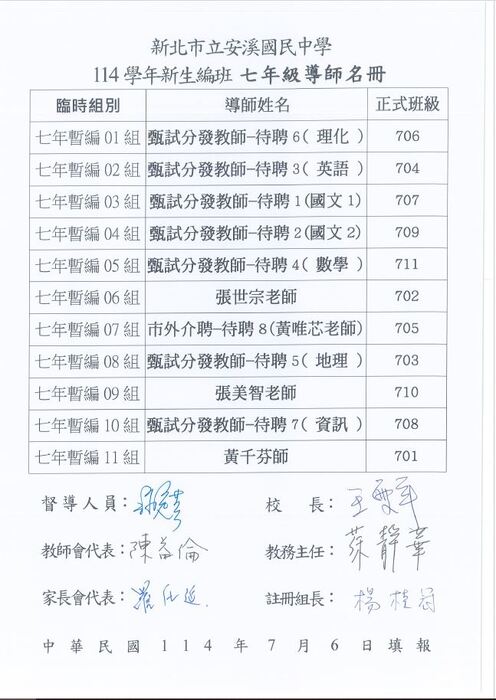 新北市立安溪國民中學
114 學年新生編班 七年級導師名冊
臨時組別 導師姓名 正式班級
七年暫編 01 組 甄試分發教師-待聘 6( 理化 ) 706
七年暫編 02 組 甄試分發教師-待聘 3( 英語 ) 704
七年暫編 03 組 甄試分發教師-待聘 1(國文 1) 707
七年暫編 04 組 甄試分發教師-待聘 2(國文 2) 709
七年暫編 05 組 甄試分發教師-待聘 4( 數學 ) 711
七年暫編 06 組 張世宗老師 702
七年暫編 07 組 市外介聘-待聘 8(黃唯芯老師) 705
七年暫編 08 組 甄試分發教師-待聘 5( 地理 ) 703
七年暫編 09 組 張美智老師 710
七年暫編 10 組 甄試分發教師-待聘 7( 資訊 ) 708
七年暫編 11 組 黃千芬師 701
督導人員： 校 長：
教師會代表：陳益倫 教務主任：葉靜華
家長會代表： 註冊組長：楊桂冠
中 華 民 國 1 1 4 年 7 月 6 日 填 報